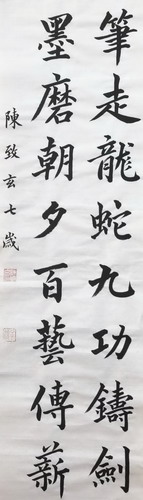 筆走龍蛇九功鑄劍
墨磨朝夕百藝傳薪
陳致玄七歲